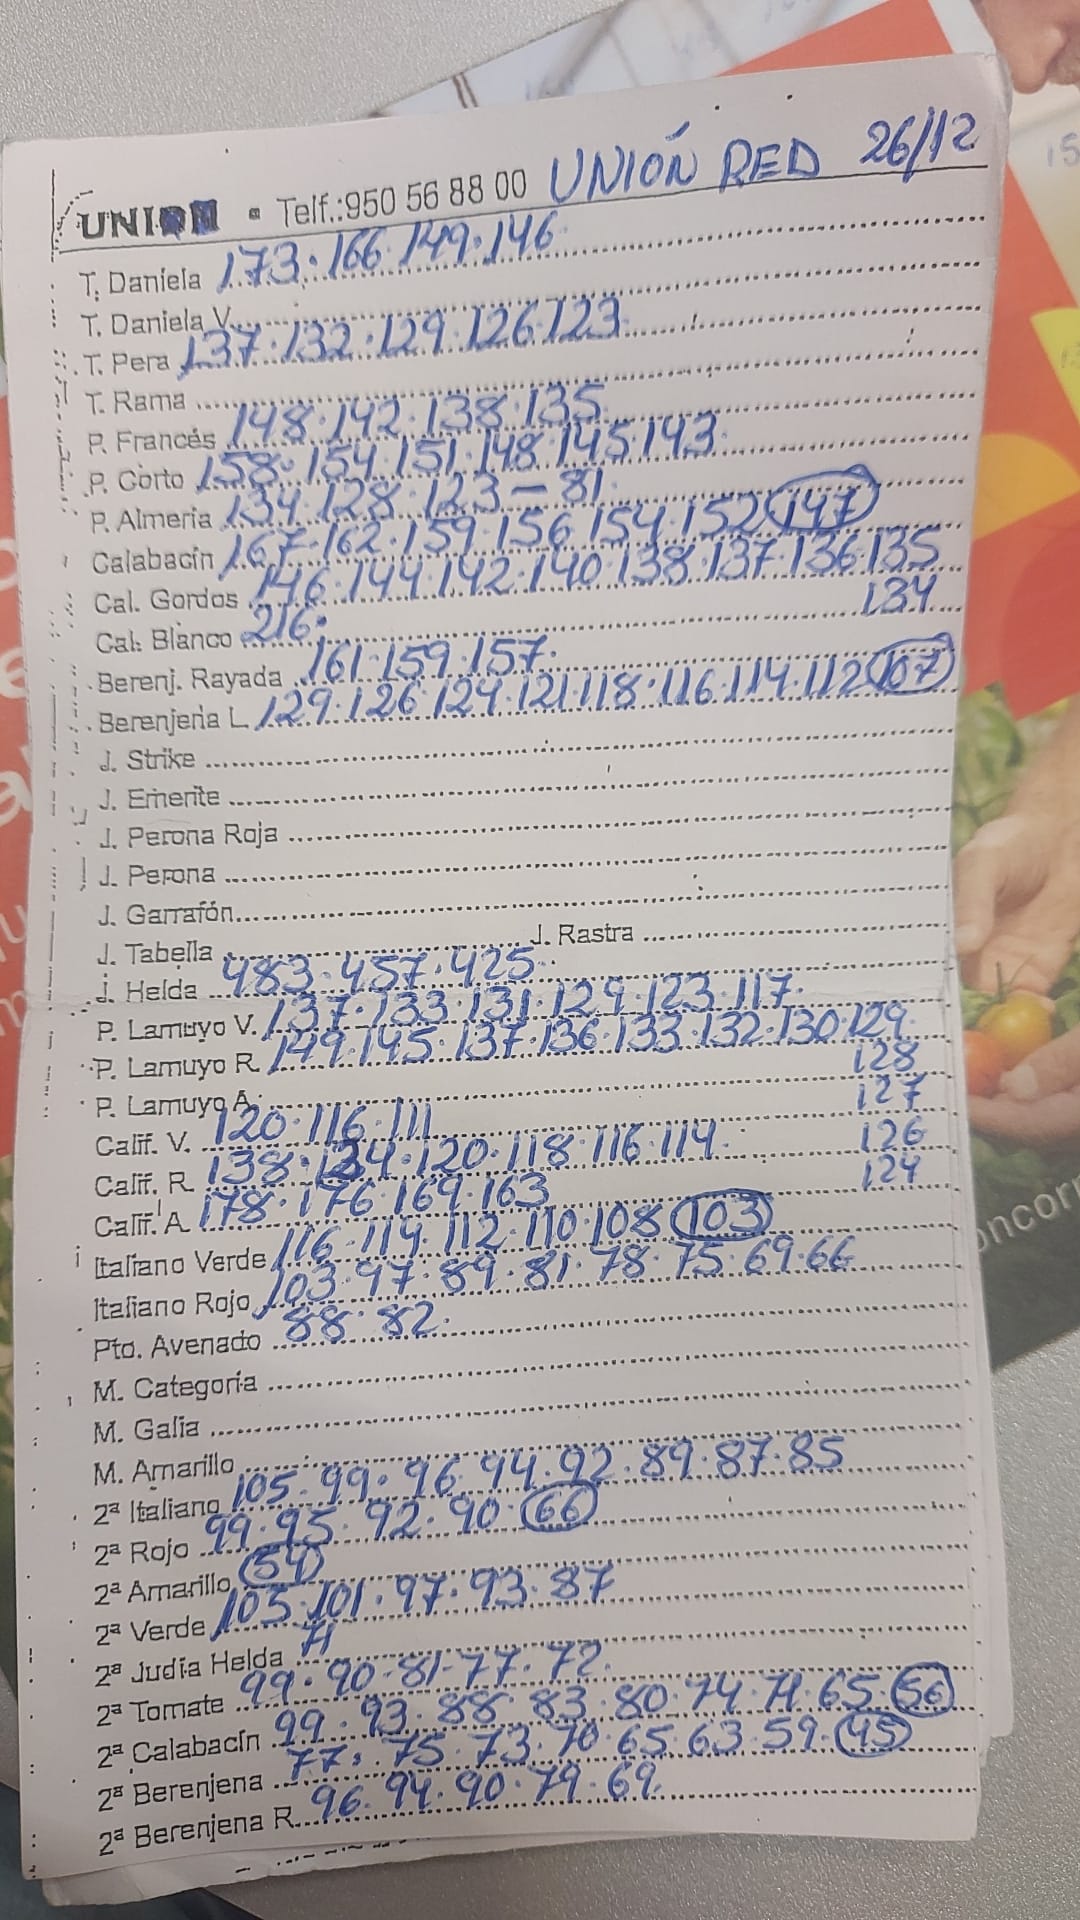 UNION - Telf.:950 56 88 00 UNIÓN RED 26/12
T. Daniela 173.166.149.146
T. Daniela V.
T. Pera 137.132.129.126.123
T. Rama
P. Francés 148.142.138.135
P. Corto 158.154.151.148.145.143
P. Almeria 134.128.123-81
Calabacín 167.162.159.156.154.152 147
Cal. Gordos 146.144.142.140.138.137.136.135
134
Cal. Blanco 216.
Berenj. Rayada 161.159.157.
Berenjena L. 129.126.124.121.118.116.114.112 107
J. Strike
J. Emerite
J. Perona Roja
J. Perona
J. Garrafón
J. Tabella J. Rastra
J. Helda 483.457.425
P. Lamuyo V. 137.133.131.129.123.117.
P. Lamuyo R. 149.145.137.136.133.132.130.129
128
P. Lamuyo A. 127
Calif. V. 120.116.111 126
Calif. R. 138.124.120.118.116.114. 124
Calif. A. 178.176.169.163
Italiano Verde 116.114.112.110.108 103
Italiano Rojo 103.97.89.81.78.75.69.66
Pto. Avenado 88.82.
M. Categoria
M. Galia
M. Amarillo
2ª Italiano 105.99.96.94.92.89.87.85
2ª Rojo 99.95.92.90. 66
2ª Amarillo 54
2ª Verde 105.101.97.93.87
2ª Judía Helda 71
2ª Tomate 99.90-81-77.72.
2ª Calabacín 99.93.88.83.80.74.71.65. 56
2ª Berenjena 77.75.73.70.65.63.59. 45
2ª Berenjena R. 96.94.90.79.69.